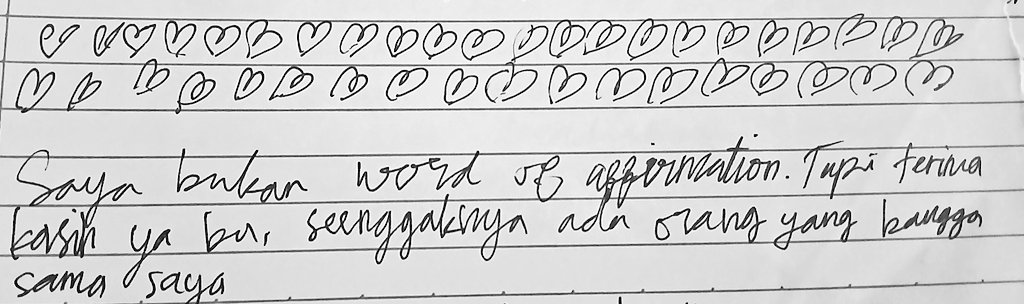 Saya bukan word of affirmation. Tapi terima
kasih ya bu, seenggaknya ada orang yang bangga
sama saya